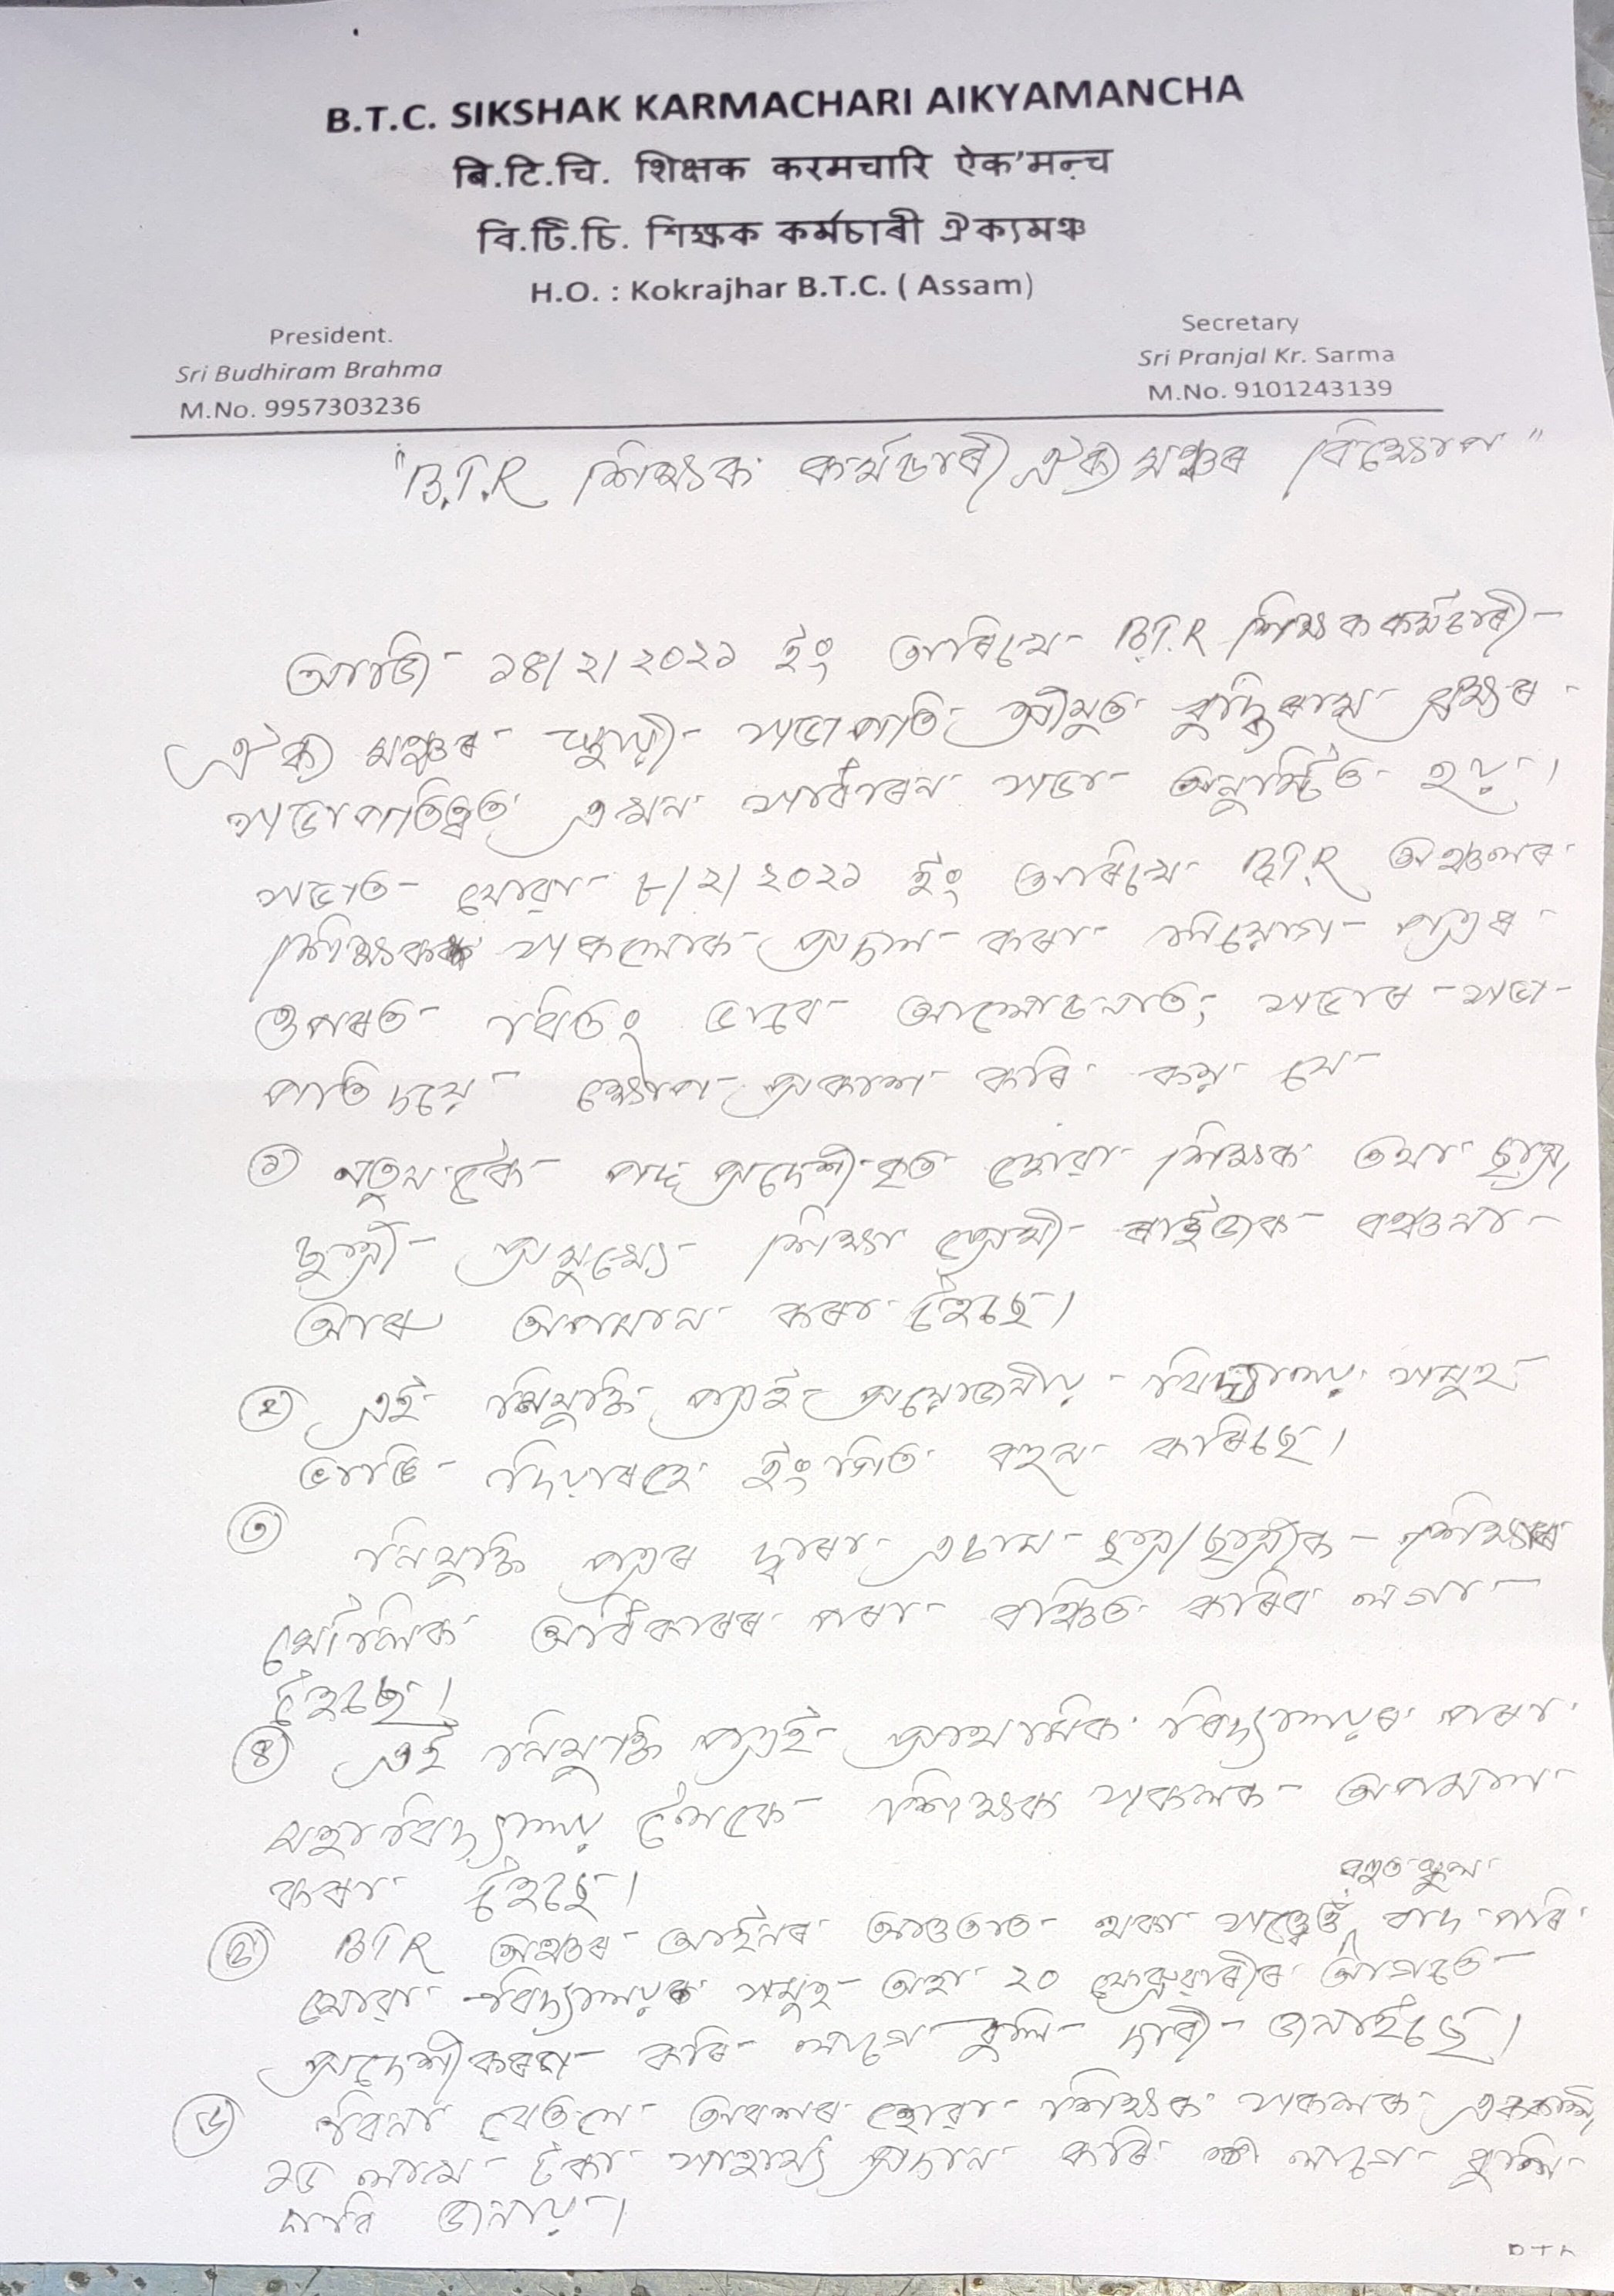 B.T.C. SIKSHAK KARMACHARI AIKYAMANCHA
बि.टि.चि. शिक्षक करमचारि ऐक'मन्च
বি.টি.চি. শিক্ষক কৰ্মচাৰী ঐক্যমঞ্চ
H.O. : Kokrajhar B.T.C. ( Assam)
President.
Sri Budhiram Brahma
M.No. 9957303236
Secretary
Sri Pranjal Kr. Sarma
M.No. 9101243139
"B.T.R শিক্ষক কৰ্মচাৰী ঐক্য মঞ্চৰ বিক্ষোভ"
আজি ১৪/২/২০২১ ইং তাৰিখে B.T.R শিক্ষক কৰ্মচাৰী
ঐক্য মঞ্চৰ স্থায়ী সভাপতি শ্ৰীযুত বুদ্ধিৰাম ব্ৰহ্মৰ
সভাপতিত্বত এখন সাধাৰন সভা অনুষ্ঠিত হয়।
সভাত যোৱা ৮/২/২০২১ ইং তাৰিখে B.T.R অঞ্চলৰ
শিক্ষক সকলোক প্ৰদান কৰা নিয়োগ পত্ৰৰ
ওপৰত ভাবে আলোচনাত, সভাৰ সভা-
পতি ক্ষোভ প্ৰকাশ কৰি কয় যে
১ নতুনকৈ পদ প্ৰদেশীকৃত হোৱা শিক্ষক তথা ছাত্ৰ,
ছাত্ৰী প্ৰমুখ্যে শিক্ষা প্ৰেমী ৰাইজক বঞ্চনা
আৰু অপমান কৰা হৈছে।
২ এই নিযুক্তি পত্ৰই প্ৰয়োজনীয় বিদ্যালয় সমুহ
ভাঙি দিয়াৰহে ইংগিত বহন কৰিছে।
৩ নিযুক্তি পত্ৰৰ দ্বাৰা এচাম ছাত্ৰ/ছাত্ৰীক শিক্ষাৰ
মৌলিক অধিকাৰৰ পৰা বঞ্চিত কৰিব লগা
হৈছে।
৪ এই নিযুক্তি পত্ৰই প্ৰাথমিক বিদ্যালয়ৰ পৰা
মহাবিদ্যালয় লৈকে শিক্ষক সকলক অপমান
কৰা হৈছে।
৫ BTR অঞ্চলৰ আইনৰ আওতাত থকা সত্ত্বেও বহুত স্কুল বাদ পৰি
যোৱা বিদ্যালয় সমুহ অহা ২০ ফেব্ৰুৱাৰীৰ আগতে
প্ৰদেশীকৰণ কৰি লাগে বুলি দাবী জনাইছে।
৬ বিনা বেতনে অবসৰ হোৱা শিক্ষক সকলক এককালীন
লাখ টকা সাহায্য প্ৰদান কৰি লাগে বুলি
দাবি জনায়।